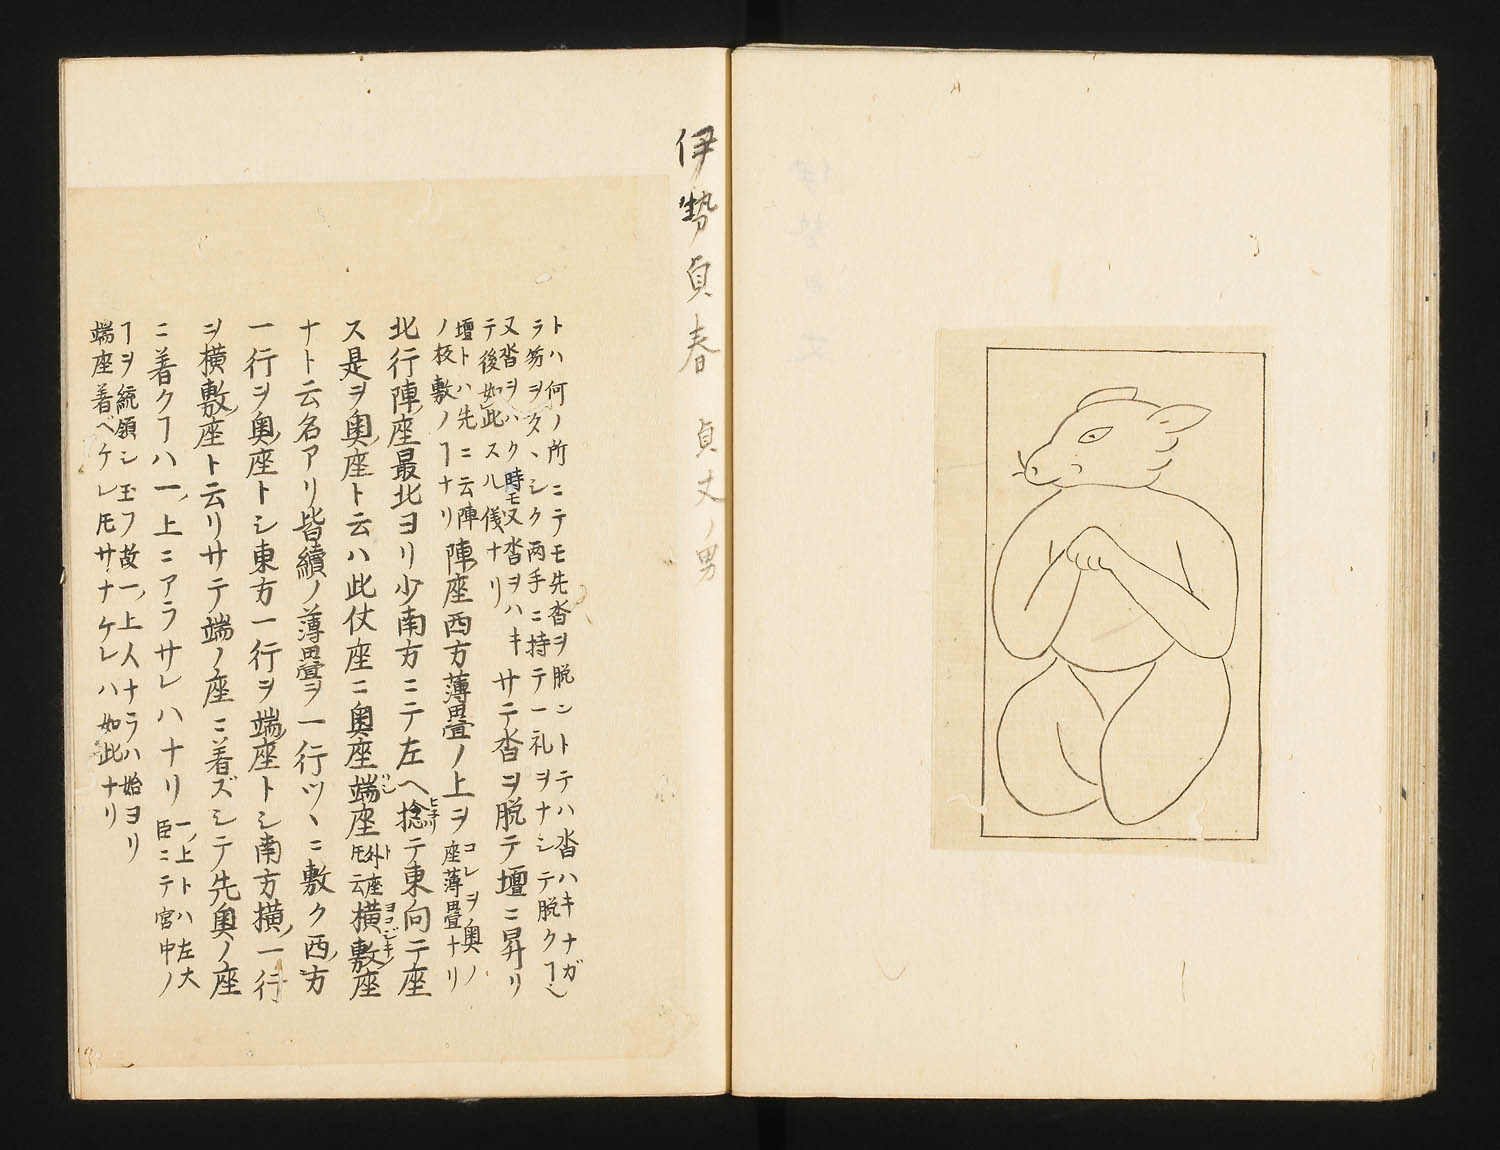 伊勢貞春 貞丈ノ男
トハ何ノ所ニテモ先沓ヲ脱ントテハ沓ハキナガ
ラ笏ヲタヽシク両手ニ持テ一礼ヲナシテ脱クヿ也
又沓ヲハク時モ又沓ヲハキ
テ後如此スル儀ナリ
サテ沓ヲ脱テ壇ニ昇リ
壇トハ先ニ云陣
ノ板敷ノヿナリ
陣座西方薄畳ノ上ヲ
コレヲ奥ノ
座薄畳ナリ
北行陣座最北ヨリ少南方ニテ左ヘ捻テ東向テ座
ヒネリ
ス是ヲ奥座ト云ハ此仗座ニ奥座端座
ハシ
外座
トモ云
横敷座
ト
ヨコジキノ
ナト云名アリ皆續ノ薄畳ヲ一行ツヽニ敷ク西ノ方
一行ヲ奥座トシ東方一行ヲ端座トシ南方横ノ一行
ヲ横敷座ト云リサテ端ノ座ニ着ズシテ先奥ノ座
ニ着クヿハ一ノ上ニアラサレハナリ
一ノ上トハ左大
臣ニテ宮中ノ
ヿヲ統領シ玉フ故一ノ上人ナラハ始ヨリ
端座着ベケレ𪜈サナケレハ如此ナリ